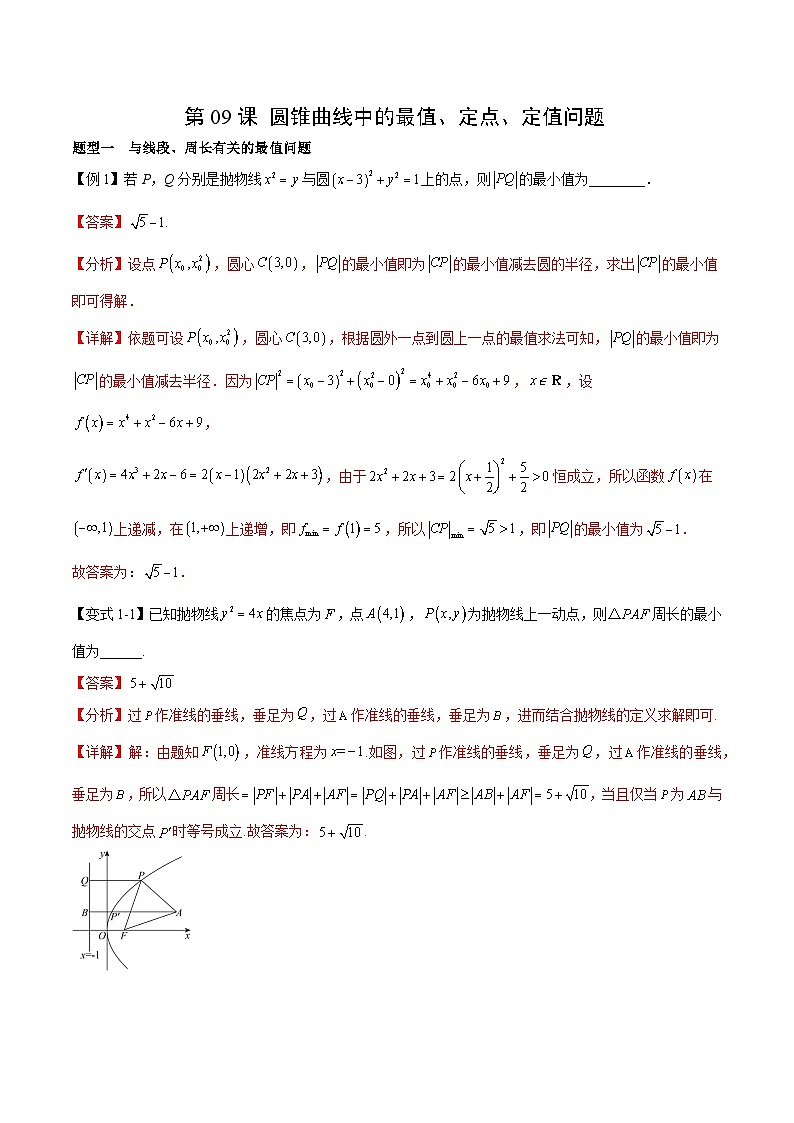 第 09 课 圆锥曲线中的最值、定点、定值问题
题型一 与线段、周长有关的最值问题
【例 1】若 P，Q 分别是抛物线 x² = y 与圆 (x−3)² + y² = 1 上的点，则 |PQ| 的最小值为________．
【答案】√5 −1.
【分析】设点 P(x₀,x₀²)，圆心 C(3,0)，|PQ| 的最小值即为 |CP| 的最小值减去圆的半径，求出 |CP| 的最小值
即可得解．
【详解】依题可设 P(x₀,x₀²)，圆心 C(3,0)，根据圆外一点到圆上一点的最值求法可知，|PQ| 的最小值即为
|CP| 的最小值减去半径．因为 |CP|² = (x₀−3)² + (x₀²−0)² = x₀⁴ + x₀² − 6x₀ + 9，x∈R，设
f(x) = x⁴ + x² − 6x + 9，
f′(x) = 4x³ + 2x − 6 = 2(x−1)(2x² + 2x + 3)，由于 2x² + 2x + 3 = 2(x + 1/2)² + 5/2 > 0 恒成立，所以函数 f(x) 在
(−∞,1) 上递减，在 (1,+∞) 上递增，即 fmin = f(1) = 5，所以 |CP|min = √5 > 1，即 |PQ| 的最小值为 √5 −1．
故答案为：√5 −1．
【变式 1-1】已知抛物线 y² = 4x 的焦点为 F，点 A(4,1)，P(x,y) 为抛物线上一动点，则△PAF 周长的最小
值为______.
【答案】5+√10
【分析】过 P 作准线的垂线，垂足为 Q，过 A 作准线的垂线，垂足为 B，进而结合抛物线的定义求解即可.
【详解】解：由题知 F(1,0)，准线方程为 x=−1.如图，过 P 作准线的垂线，垂足为 Q，过 A 作准线的垂线，
垂足为 B，所以△PAF 周长 = |PF|+|PA|+|AF| = |PQ|+|PA|+|AF| ≥ |AB|+|AF| = 5+√10，当且仅当 P 为 AB 与
抛物线的交点 P′ 时等号成立.故答案为：5+√10．
y
Q P
B P′ A
O F x
x=-1